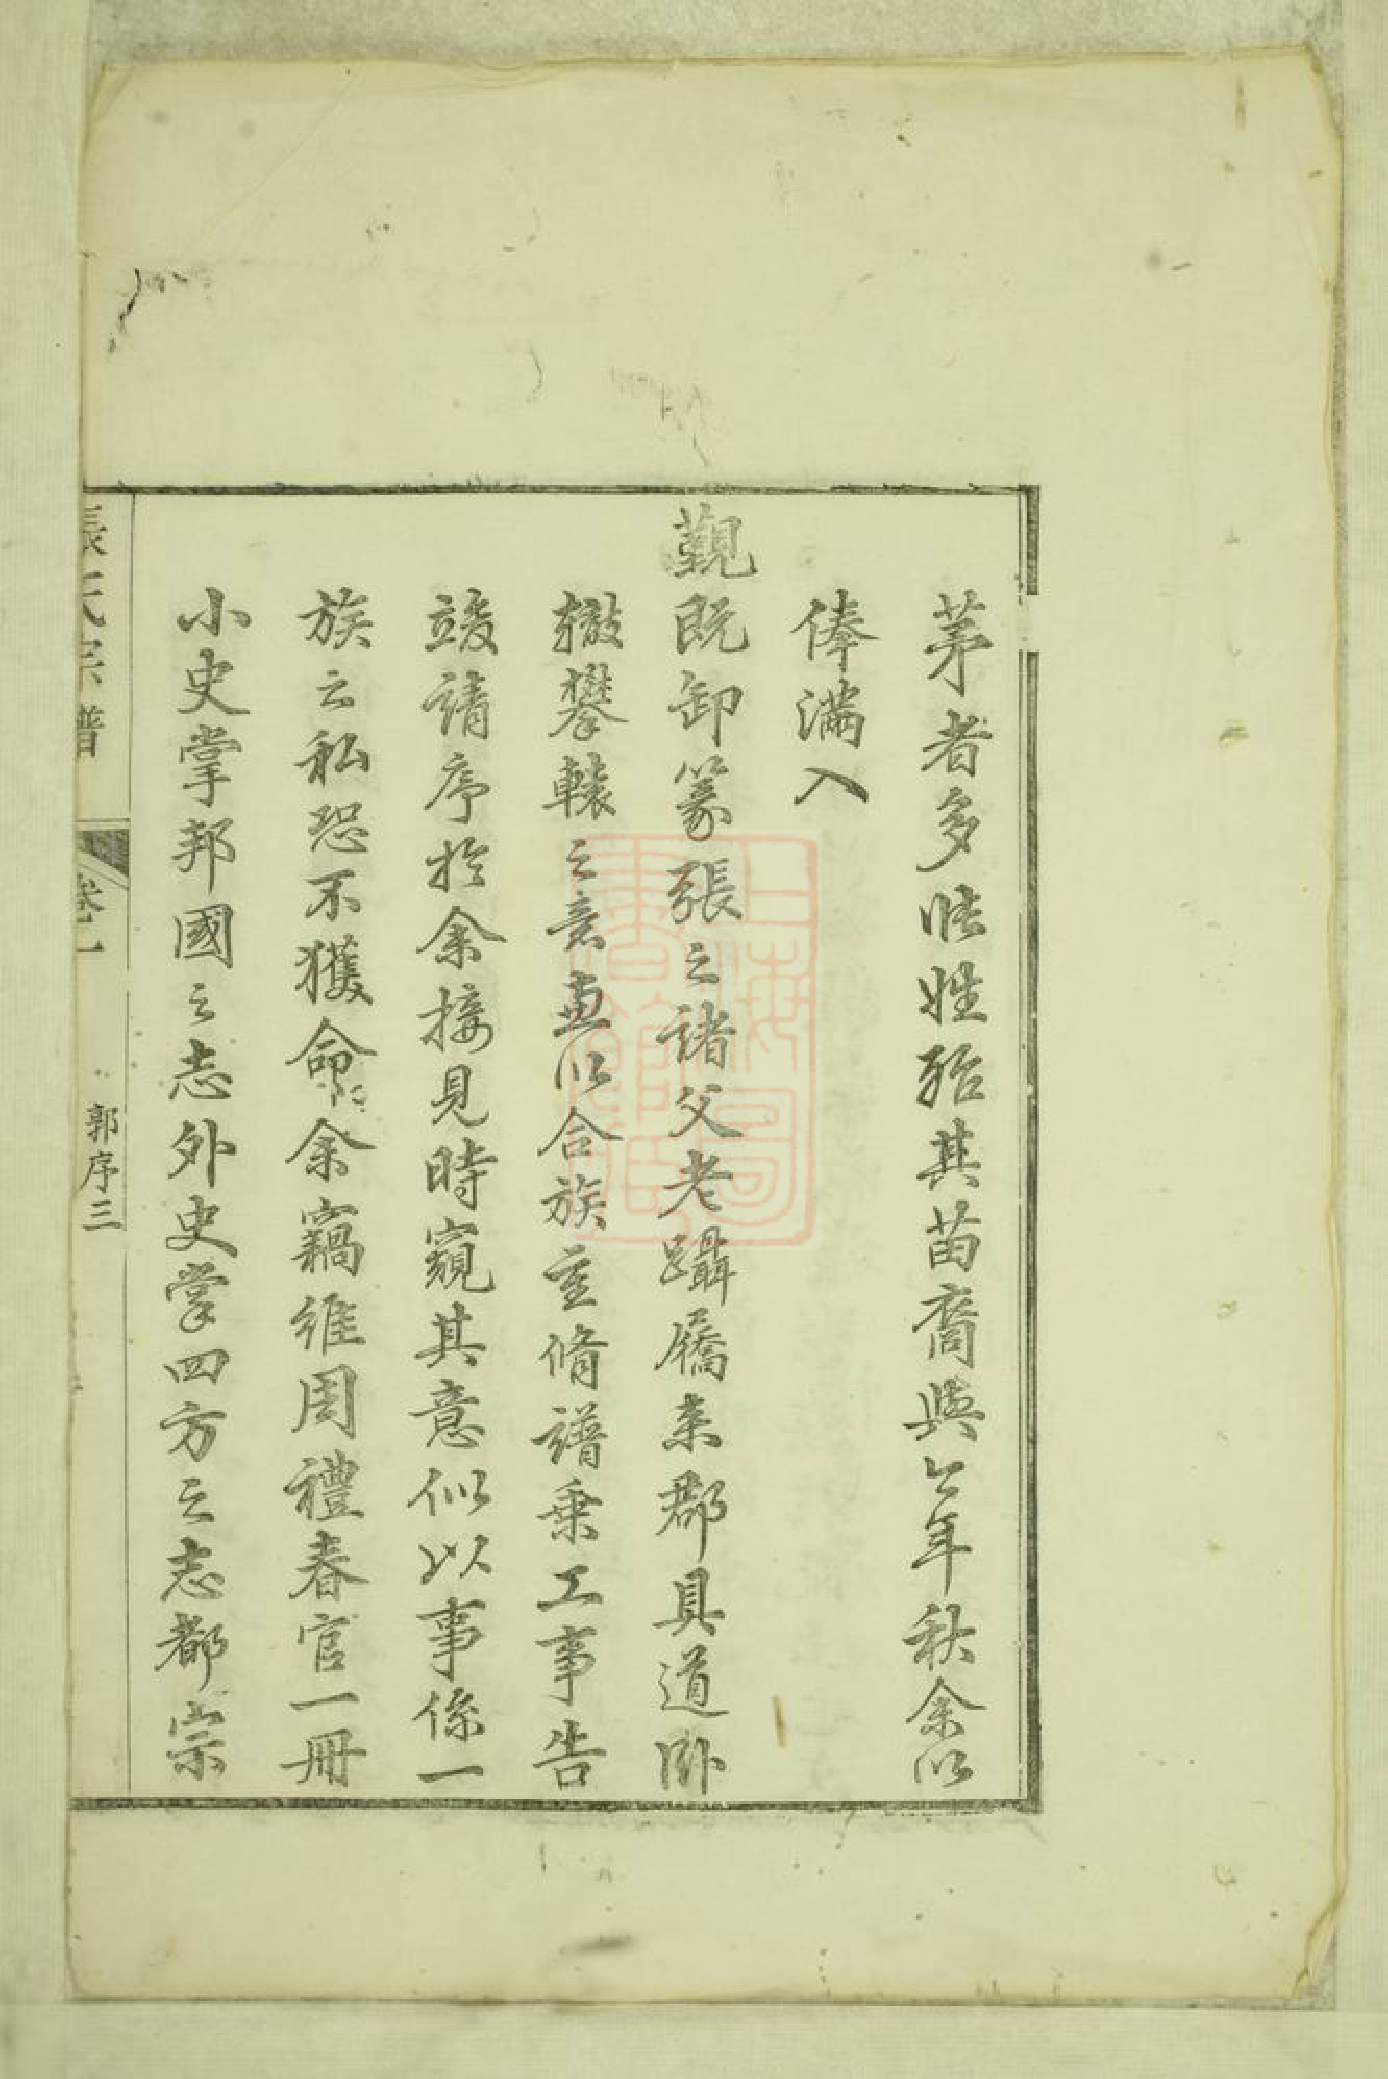 茅者多怅姓殆其苗裔與今年秋余以
俸滿入
覲既卸篆張之諸父老躡屩來郡具道卧
轍攀轅之意更以合族重脩譜乘工事告
竣請序於余接見時窺其意似以事係一
族之私恐不獲命余竊維周禮春官一冊
小史掌邦國之志外史掌四方之志都宗
張氏宗譜
卷一
郭序三
上海圖書館藏